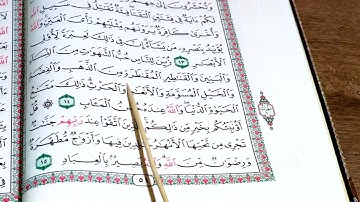 وَتُحْشَرُونَ إِلَىٰ
كُمْ ءَايَةٌ فِى فِئَتَيْنِ ٱلْتَقَتَا فِئَةٌ تُقَٰتِلُ فِى سَبِيلِ
وَأُخْرَىٰ كَافِرَةٌ يَرَوْنَهُم مِّثْلَيْهِمْ رَأْىَ ٱلْعَيْنِ وَٱللَّهُ
يُؤَيِّدُ بِنَصْرِهِۦ مَن يَشَآءُ إِنَّ فِى ذَٰلِكَ لَعِبْرَةً لِّأُو۟لِى
ٱلْأَبْصَٰرِ ١٣ زُيِّنَ لِلنَّاسِ حُبُّ ٱلشَّهَوَٰتِ مِنَ ٱلنِّسَآءِ
وَٱلْبَنِينَ وَٱلْقَنَٰطِيرِ ٱلْمُقَنطَرَةِ مِنَ ٱلذَّهَبِ وَٱلْفِضَّةِ
وَٱلْخَيْلِ ٱلْمُسَوَّمَةِ وَٱلْأَنْعَٰمِ وَٱلْحَرْثِ ذَٰلِكَ مَتَٰعُ
ٱلْحَيَوٰةِ ٱلدُّنْيَا وَٱللَّهُ عِندَهُۥ حُسْنُ ٱلْمَـَٔابِ ١٤ قُلْ
أَؤُنَبِّئُكُم بِخَيْرٍ مِّن ذَٰلِكُمْ لِلَّذِينَ ٱتَّقَوْا۟ عِندَ رَبِّهِمْ جَنَّٰتٌ
تَجْرِى مِن تَحْتِهَا ٱلْأَنْهَٰرُ خَٰلِدِينَ فِيهَا وَأَزْوَٰجٌ مُّطَهَّرَةٌ
وَرِضْوَٰنٌ مِّنَ ٱللَّهِ وَٱللَّهُ بَصِيرٌۢ بِٱلْعِبَادِ ١٥